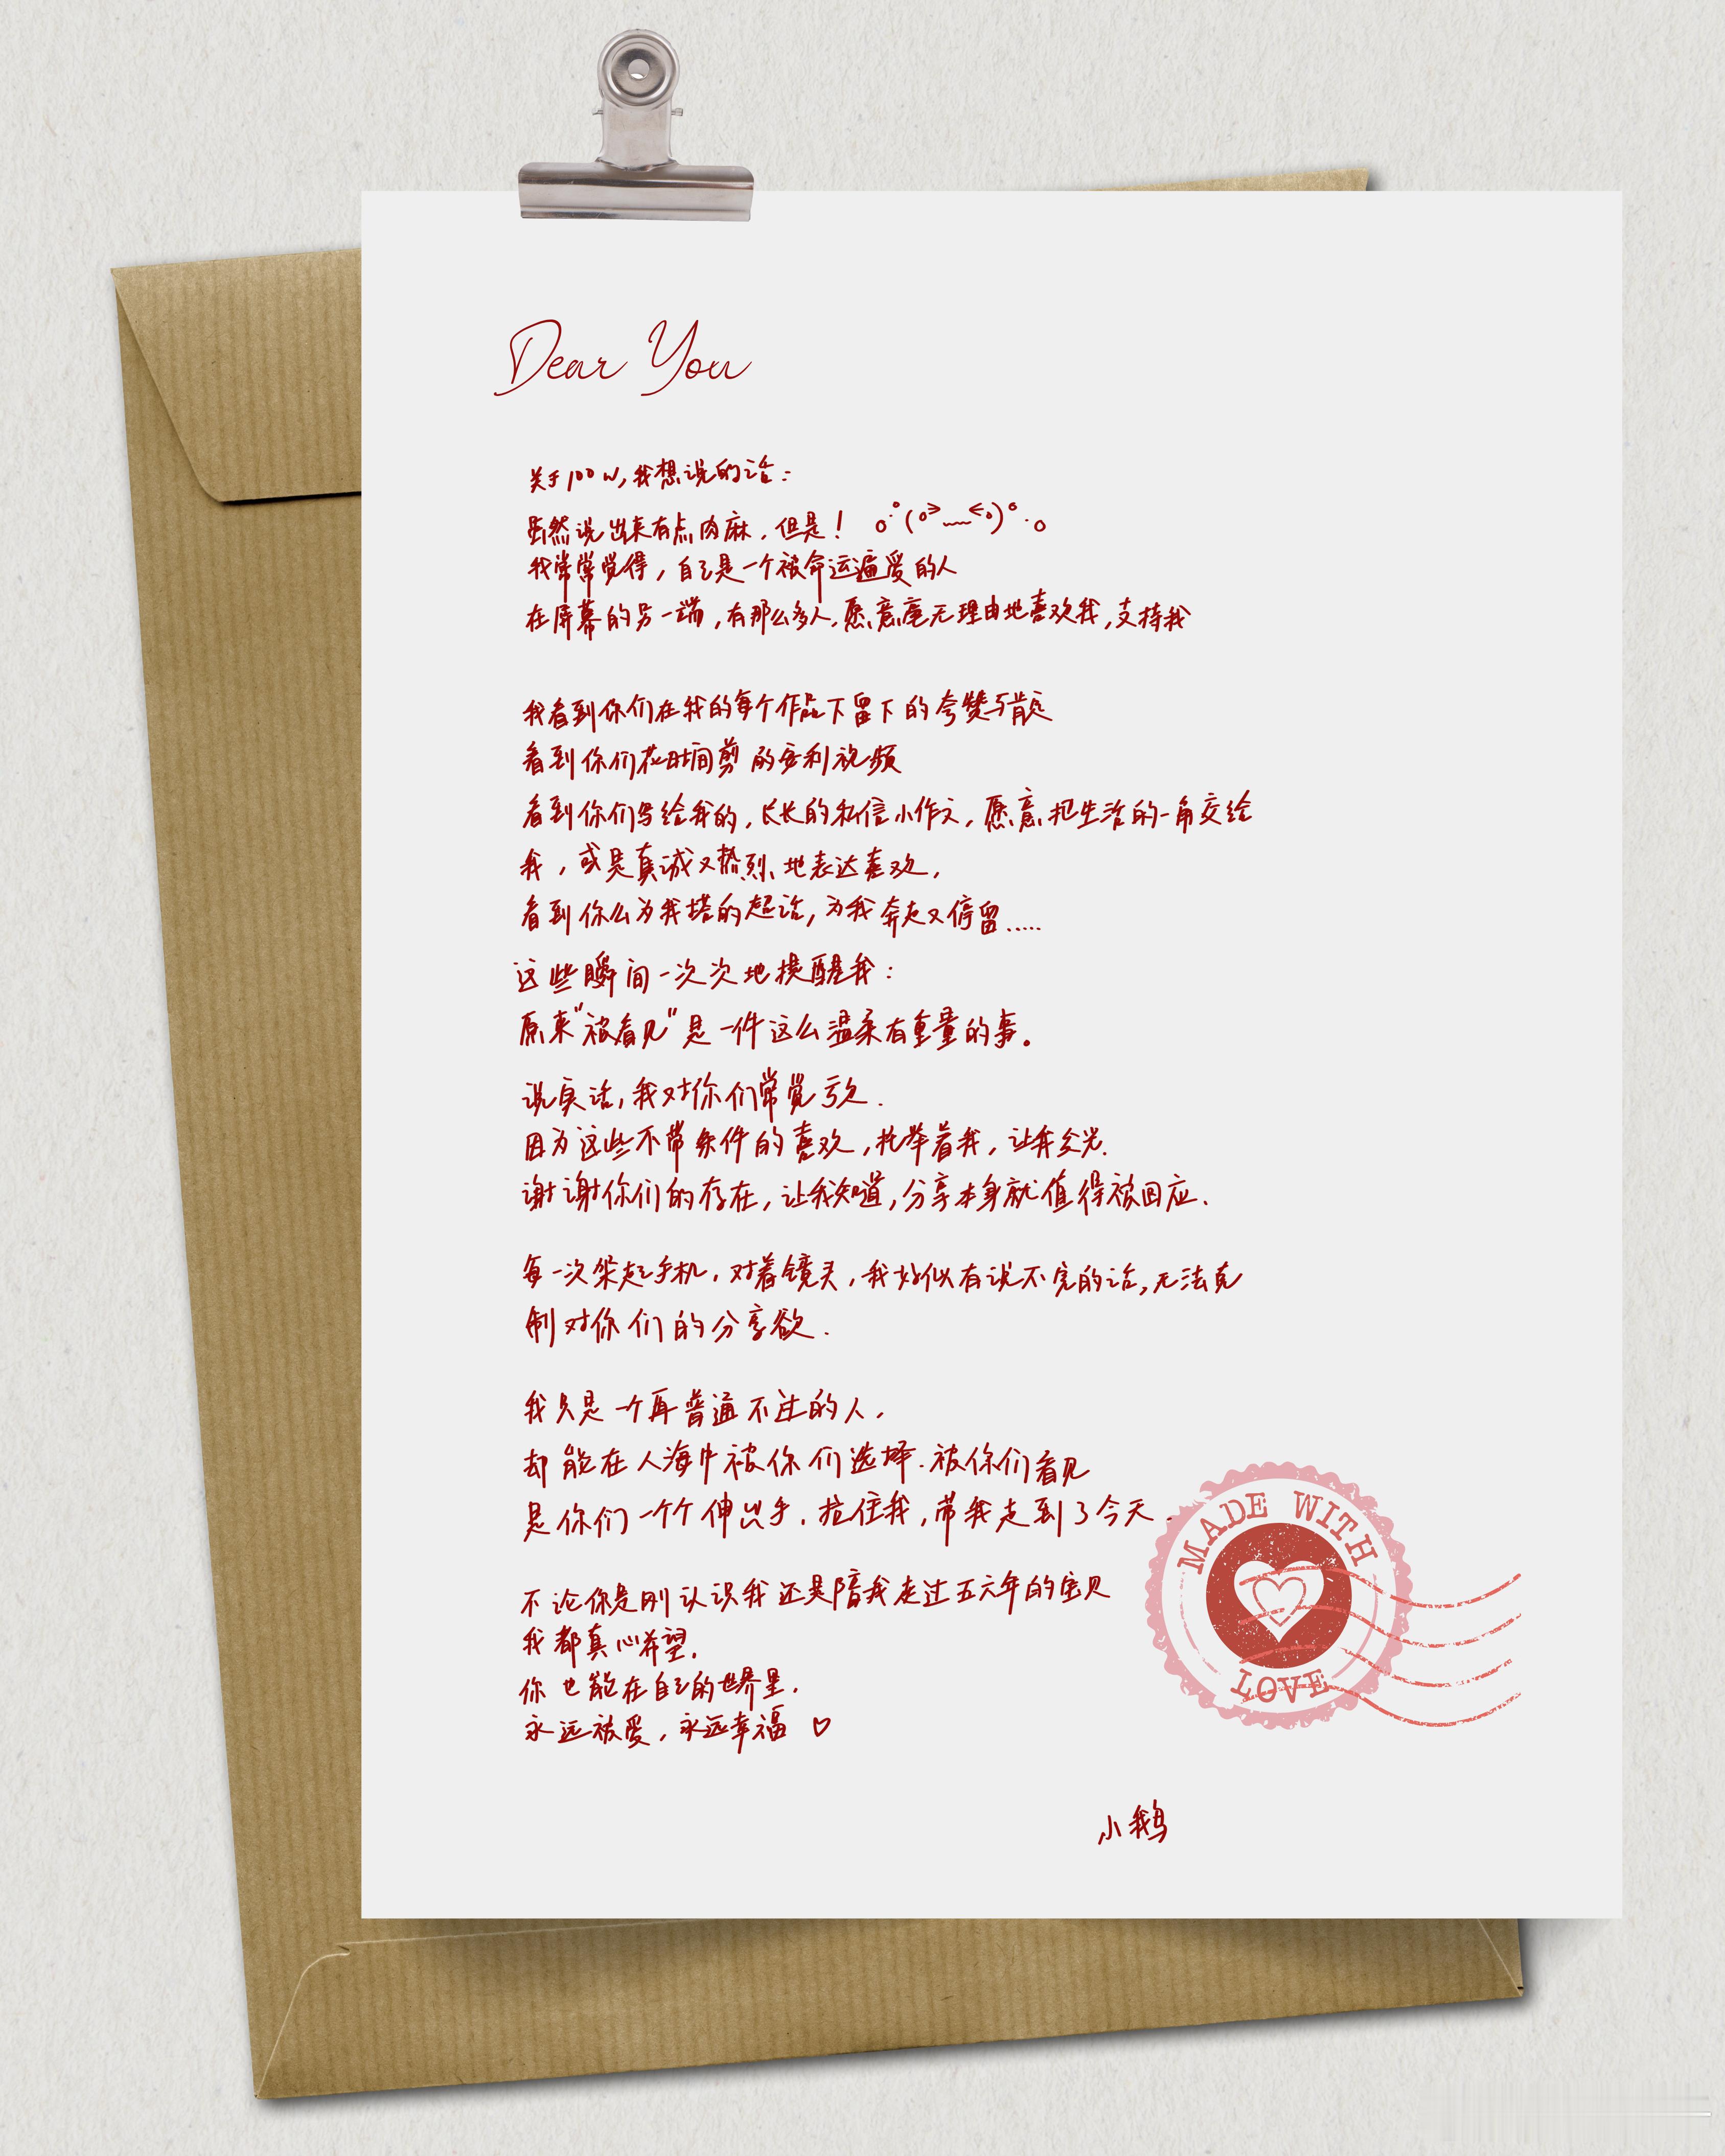 Dear You
关于100w,我想说的话:
虽然说出来有点肉麻,但是!
我常常觉得,自己是一个被命运遍爱的人
在屏幕的另一端,有那么多人,愿意毫无理由地喜欢我,支持我
我看到你们在我的每个作品下留下的夸赞与肯定
看到你们花时间剪的安利视频
看到你们写给我的,长长的私信小作文,愿意把生活的一角交给
我,或是真诚又热烈地表达喜欢,
看到你么为我搭的超话,为我奔走又停留.....
这些瞬间一次次地提醒我:
原来"被看见"是一件这么温柔有重量的事。
说实话,我对你们常觉亏欠.
因为这些不带条件的喜欢,托举着我,让我发光.
谢谢你们的存在,让我知道,分享本身就值得被回应.
每一次架起手机,对着镜头,我好似有说不完的话,无法克
制对你们的分享欲.
我只是一个再普通不过的人,
却能在人海中被你们选择.被你们看见
是你们一个个伸出手.拉住我,带我走到了今天.
不论你是刚认识我还是陪我走过五六年的宝贝
我都真心希望,
你也能在自己的世界里,
永远被爱,永远幸福 ♡
小鹅
MADE WITH
LOVE